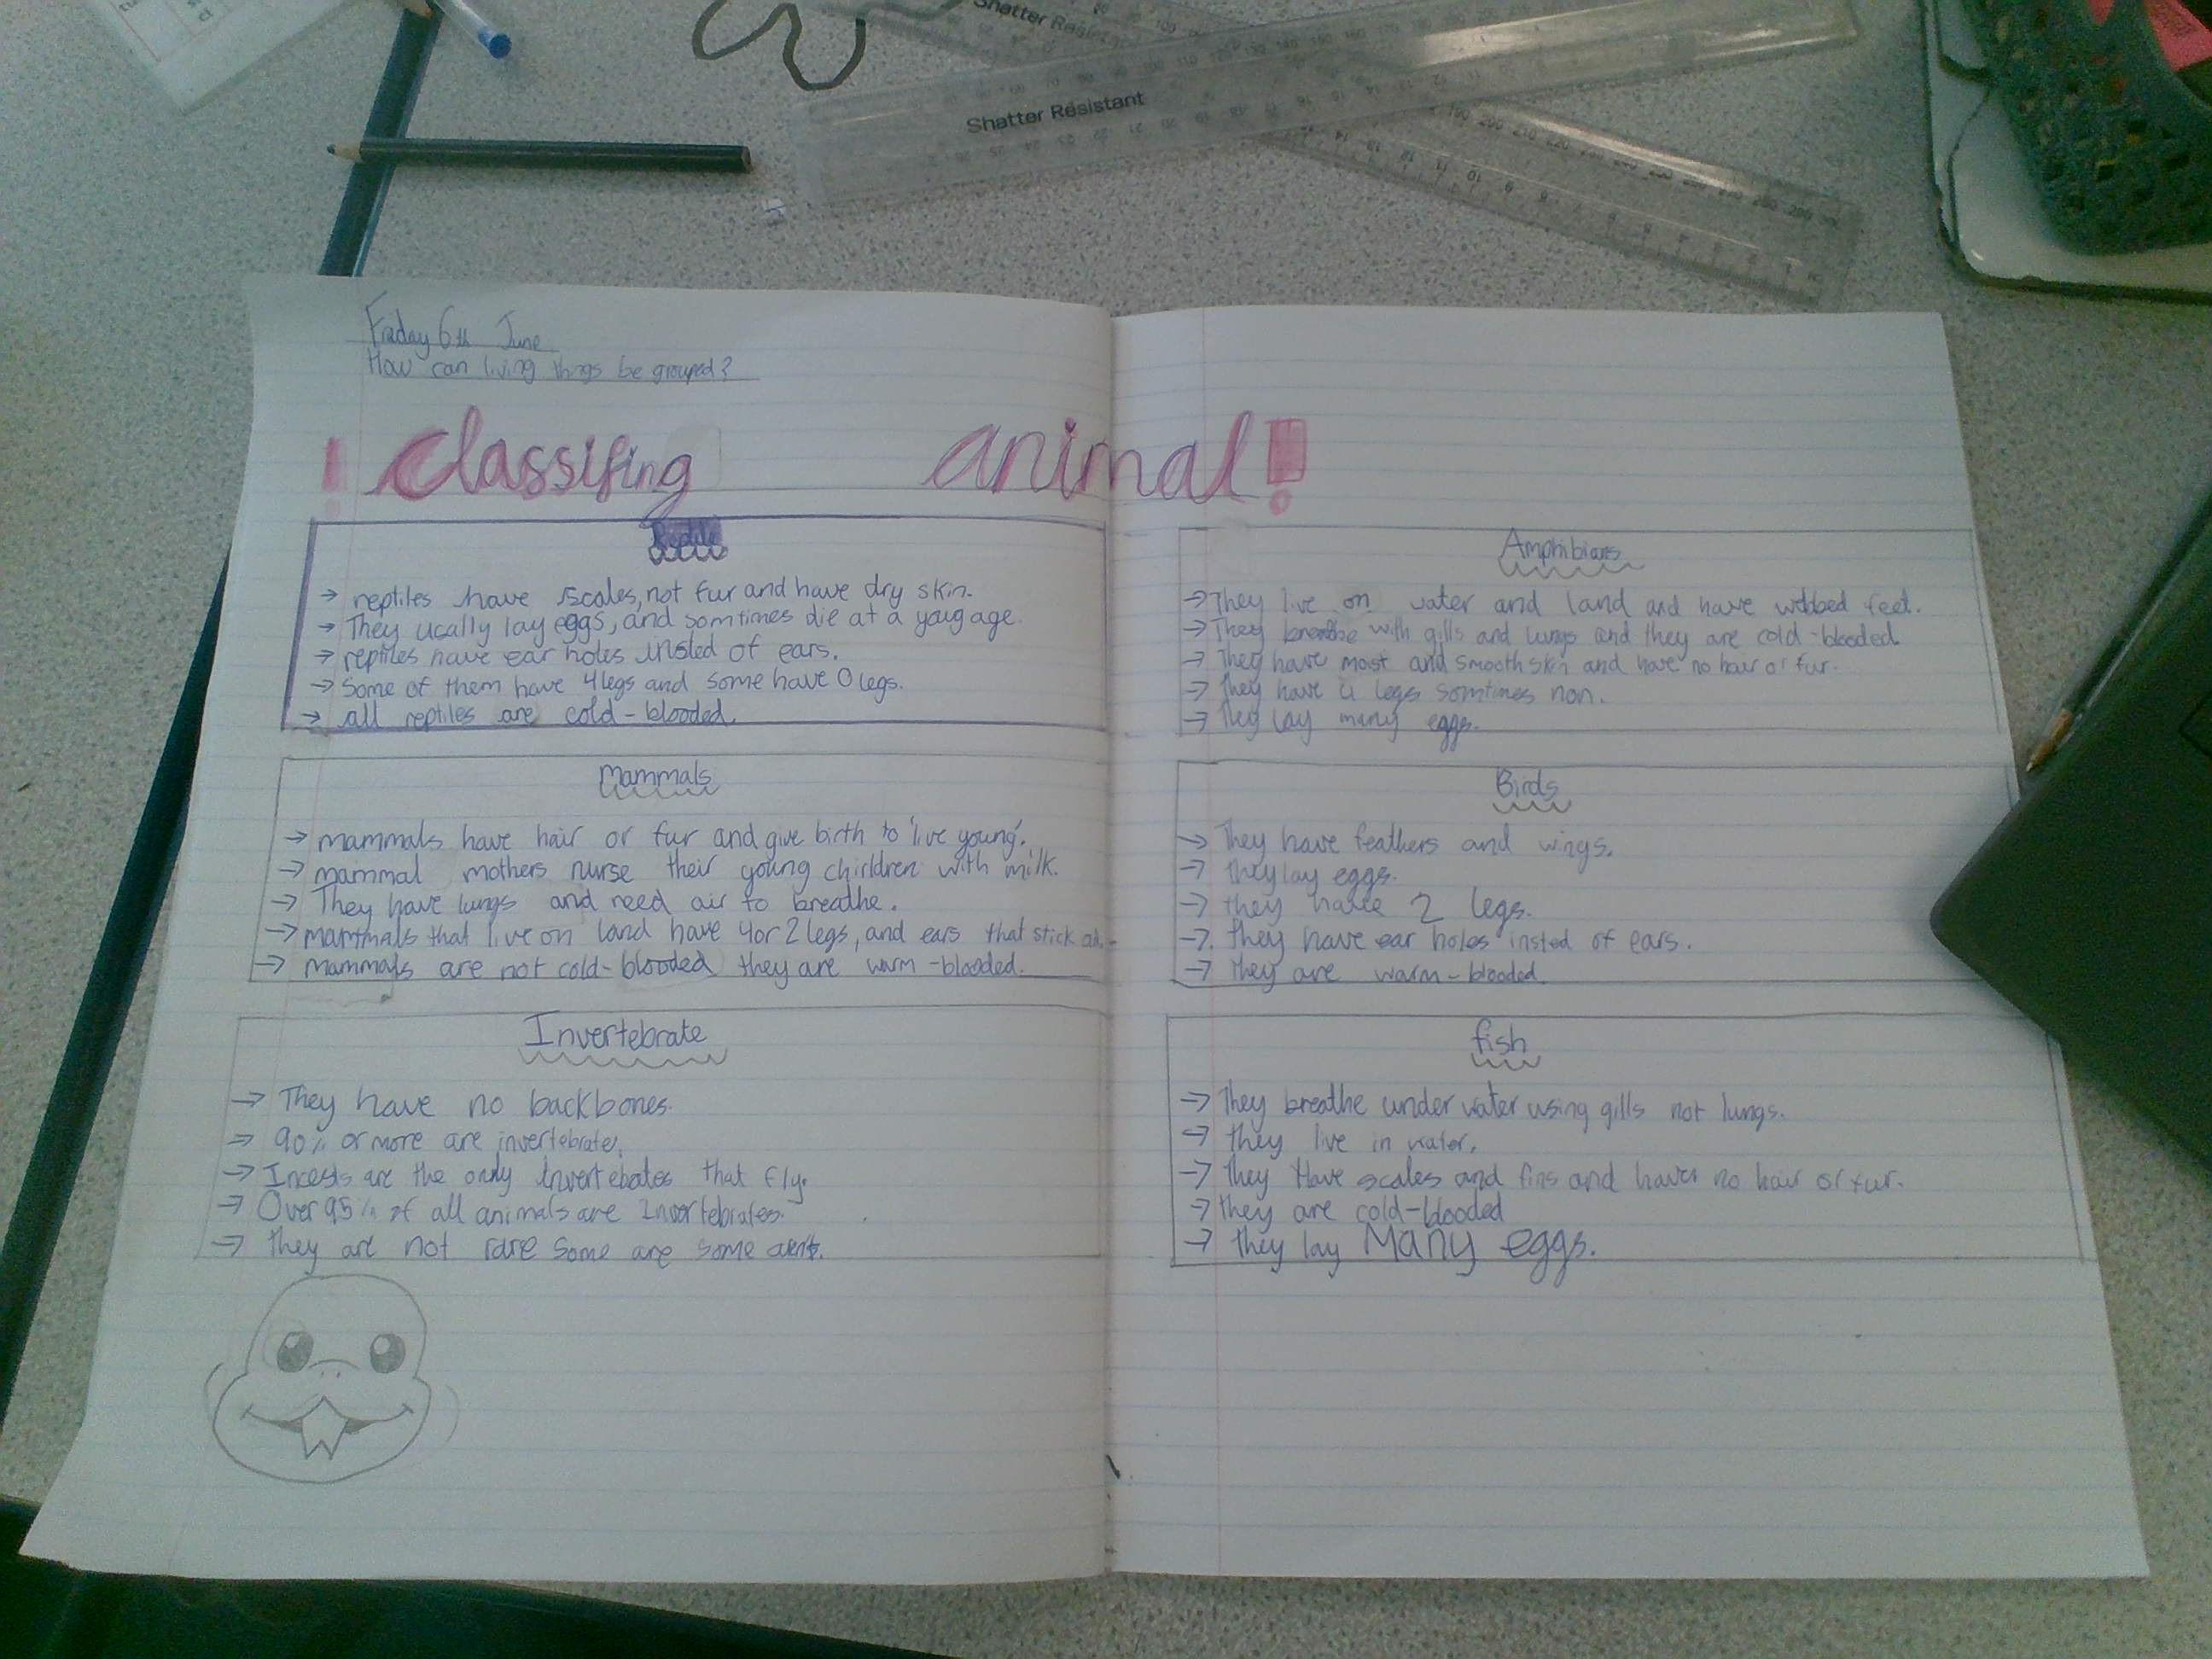 Shatter Resistant
Shatter Resistant
Friday 6th June
How can living things be grouped?
! classifing animal!
Reptile
→ reptiles have scales, not fur and have dry skin.
→ They ucally lay eggs, and somtimes die at a youg age.
→ reptiles have ear holes insted of ears.
→ Some of them have 4 legs and some have 0 legs.
→ all reptiles are cold-blooded.
Mammals
→ mammals have hair or fur and give birth to 'live young'.
→ mammal mothers nurse their young chirldren with milk.
→ They have lungs and need air to breathe.
→ mammals that live on land have 4 or 2 legs, and ears that stick
→ mammals are not cold-blooded they are warm-blooded.
Invertebrate
→ They have no backbones.
→ 90% or more are invertebrate.
→ Incests are the only invertebates that fly.
→ Over 95% of all animals are Invertebrates.
→ they are not rare some are some
Amphibians
→ They live on water and land and have webbed feet.
→ They breathe with gills and lungs and they are cold-blooded
→ They have moist and smooth skin and have no hair or fur.
→ They have 4 legs somtimes non.
→ They lay many eggs.
Birds
→ They have feathers and wings.
→ they lay eggs.
→ they have 2 legs.
→ They have ear holes insted of ears.
→ they are warm-blooded.
fish
→ They breathe under water using gills not lungs.
→ they live in water.
→ They Have scales and fins and have no hair or fur.
→ they are cold-blooded
→ they lay Many eggs.